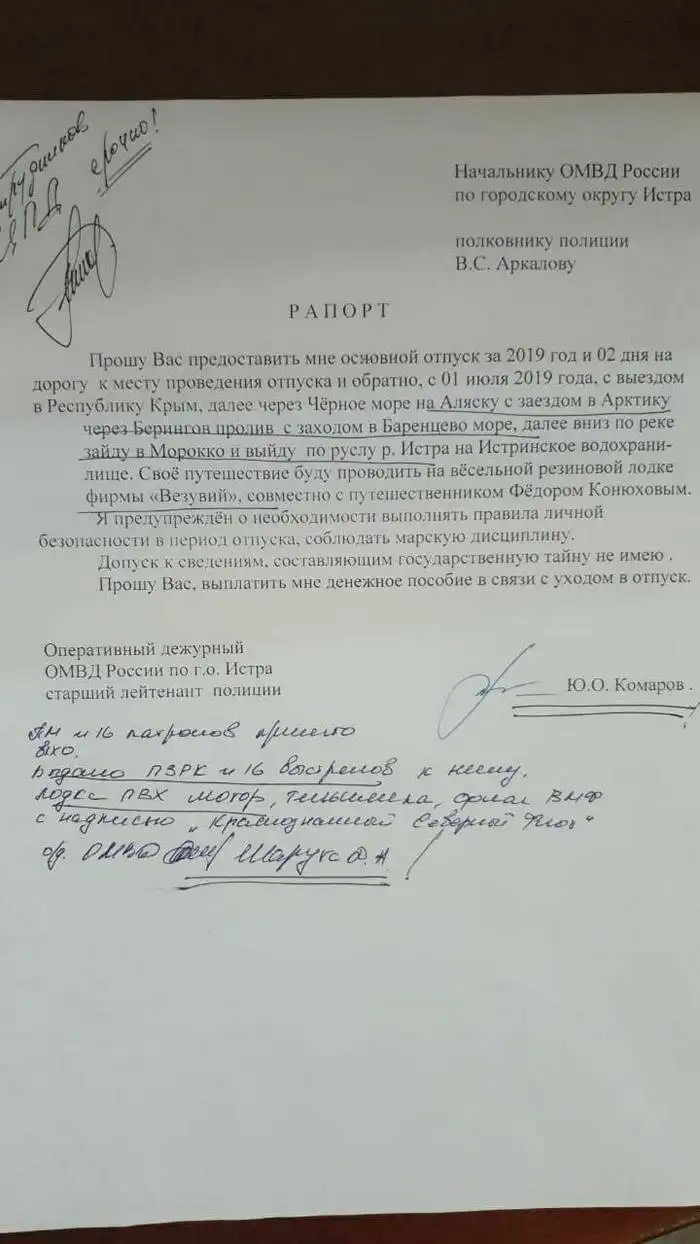 срочно!
Начальнику ОМВД России
по городскому округу Истра
полковнику полиции
В.С. Аркалову
РАПОРТ
Прошу Вас предоставить мне основной отпуск за 2019 год и 02 дня на
дорогу к месту проведения отпуска и обратно, с 01 июля 2019 года, с выездом
в Республику Крым, далее через Чёрное море на Аляску с заездом в Арктику
через Берингов пролив с заходом в Баренцево море, далее вниз по реке
зайду в Морокко и выйду по руслу р. Истра на Истринское водохрани-
лище. Своё путешествие буду проводить на вёсельной резиновой лодке
фирмы «Везувий», совместно с путешественником Фёдором Конюховым.
Я предупреждён о необходимости выполнять правила личной
безопасности в период отпуска, соблюдать марскую дисциплину.
Допуск к сведениям, составляющим государственную тайну не имею .
Прошу Вас, выплатить мне денежное пособие в связи с уходом в отпуск.
Оперативный дежурный
ОМВД России по г.о. Истра
старший лейтенант полиции
Ю.О. Комаров .
ПМ и 16 патронов принято
Выдано ПЗРК и 16 выстрелов к нему,
лодка ПВХ мотор, тельняшка, флаг ВМФ
с надписью „Краснознаменный Северный Флот“
о/д. ОМВД Шарука